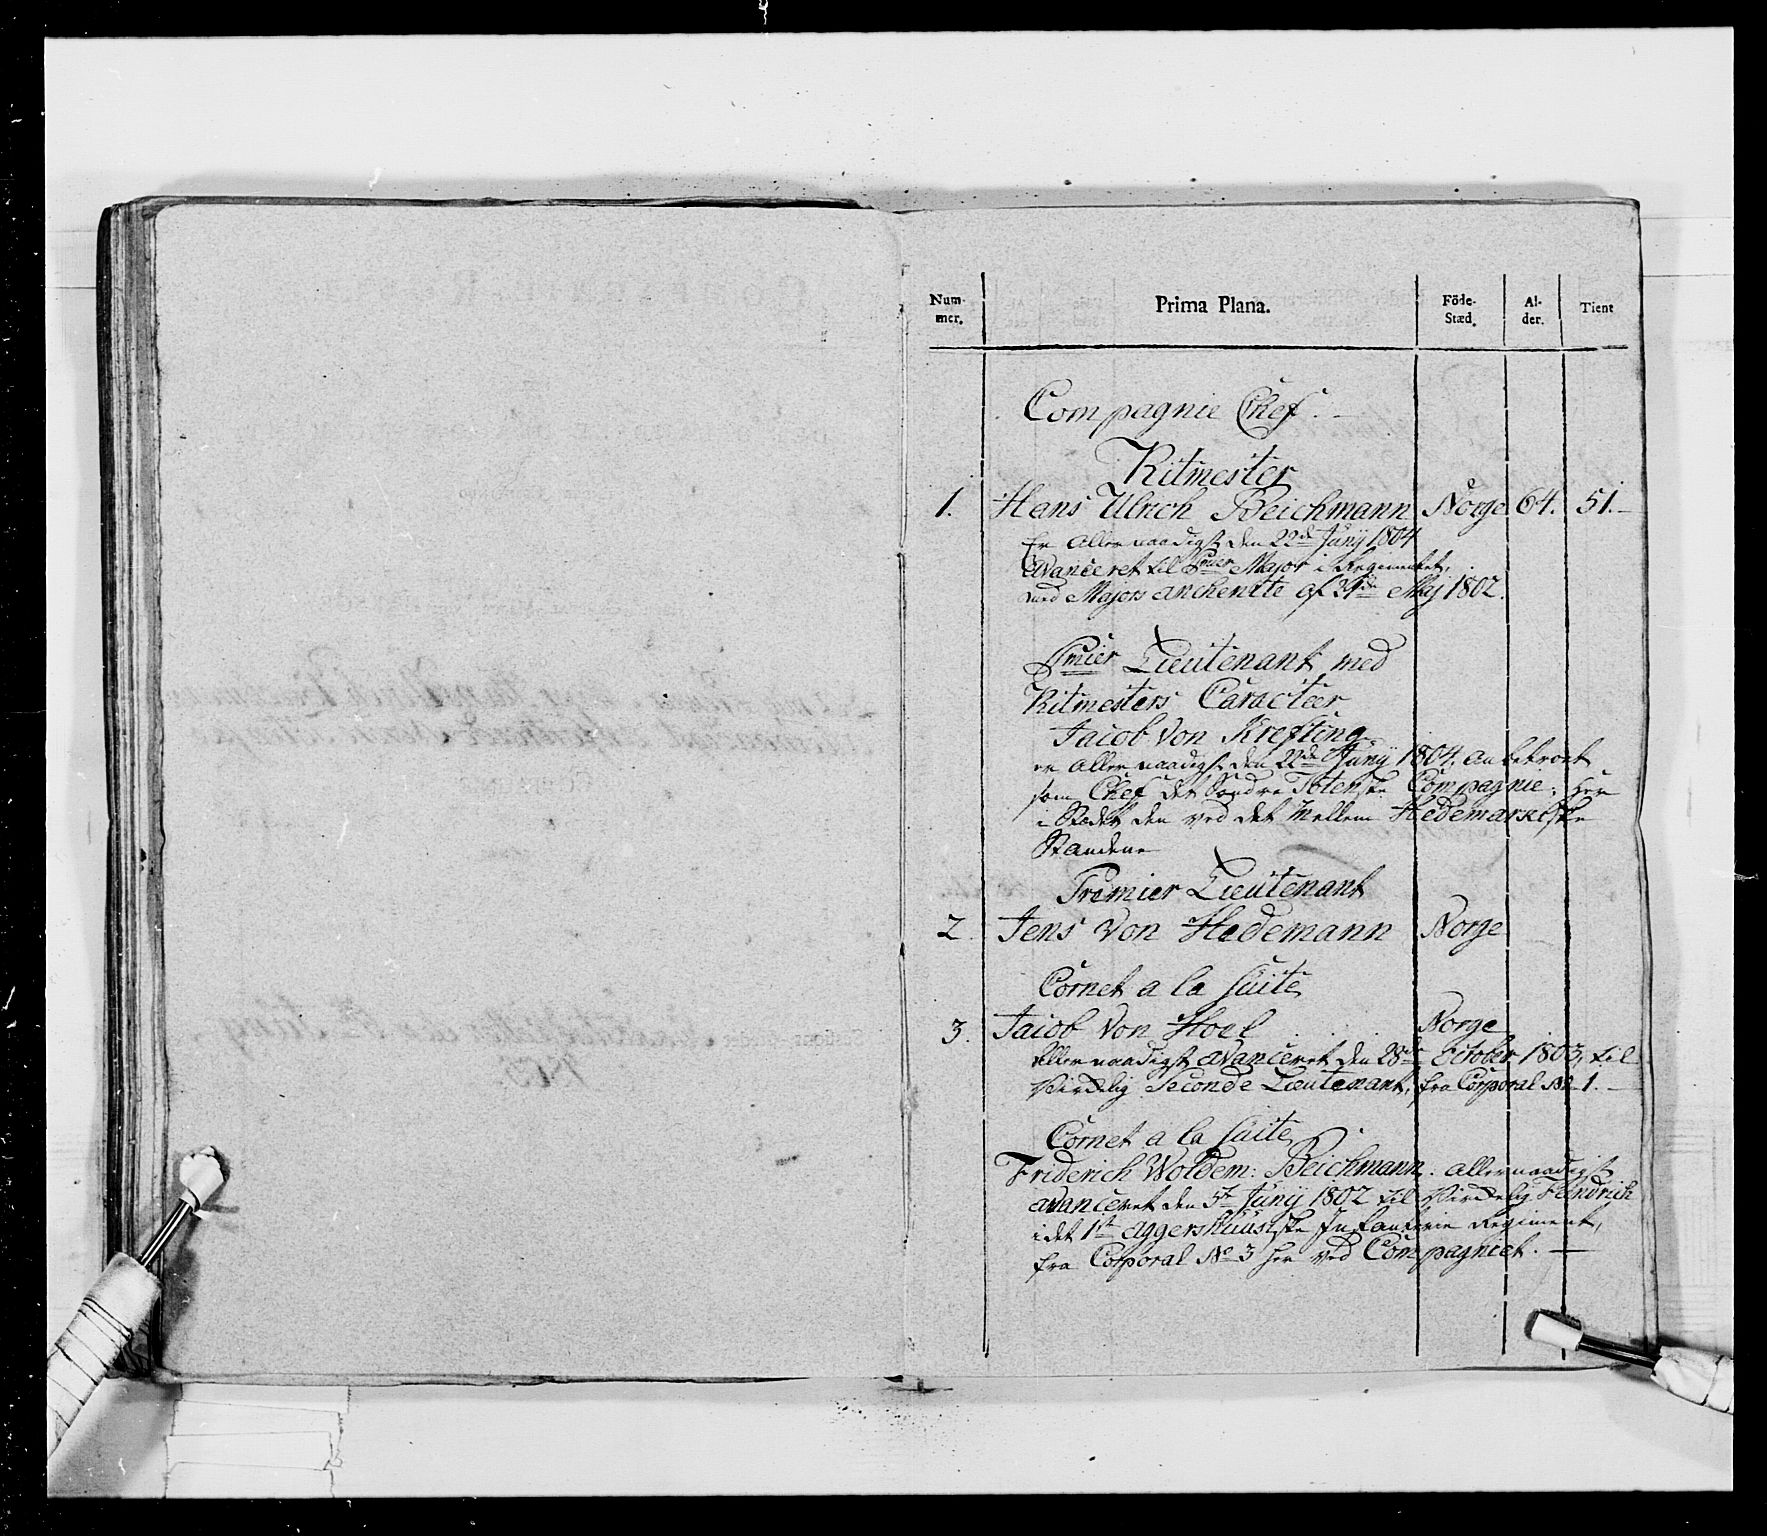 Num-
mer.
Prima Plana.
Föde-
Stæd.
Al-
der.
Tient
Compagnie Chef.
Ritmester
1. Hans Ulrich Beichmann Norge 64. 51.
Er allernaadigst den 22de Junÿ 1804
avanceret til Pmier Major i Regimentet,
med Majors anchenitte af Maj 1802.
Pmier Lieutenant med
Ritmesters Caracteer
Jacob von Krefting
er allernaadigst den 22de Junÿ 1804. anbetroet
som Chef det Søndre Totenske Compagnie; her
i Stædet den ved det Mellem Hedemarkske
Staaende
Premier Lieutenant
2 Jens von Hedemann Norge
Cornet a la Suite
3. Jacob von Hoel Norge
Allernaadigst avanceret den 28de October 1803, til
Virkelig Seconde Lieutenant, fra Corporal No 1.
Cornet a la Suite
Friderich Woldem: Beichmann. allernaadigst
avanceret den 5te Junÿ 1802 til Virkelig Fendrich
i det 1st Aggershuusiske Infanterie Regiment,
fra Corporal No 3 her ved Compagniet.